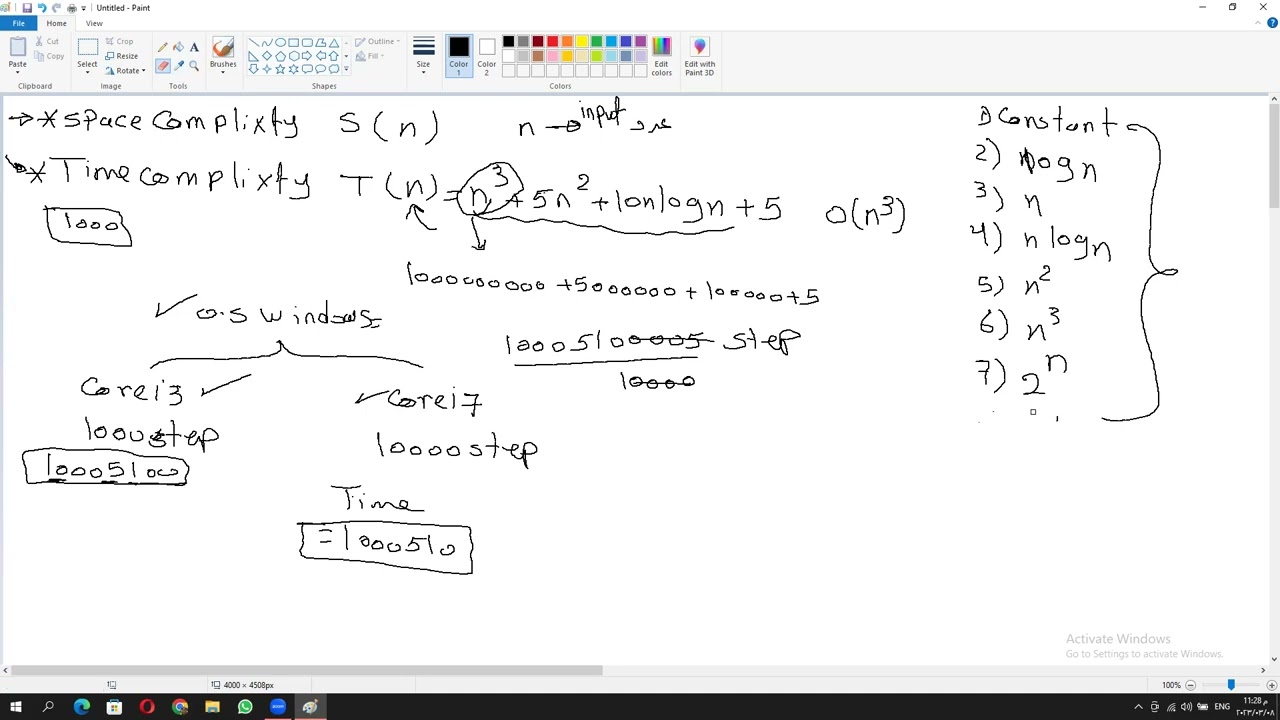 Untitled - Paint
File Home View
Paste Cut Copy Clipboard
Select Crop Resize Rotate Image
Tools
Brushes
Shapes Outline Fill
Size
Color 1 Color 2 Edit colors Colors
Edit with Paint 3D
→ * space Complixty S(n) n → input
* Time complixty T(n) = n³ + 5n² + 10nlogn + 5 O(n³)
1000
1000000000 + 5000000 + 100000 + 5
o.s windows
10005100005 step
10000
Core i3 Core i7
1000 step 10000 step
10005100
Time
= 1000510
1) Constant
2) logn
3) n
4) n logn
5) n²
6) n³
7) 2ⁿ
Activate Windows
Go to Settings to activate Windows.
4000 × 4508px 100%
ENG 11:28 م
٢٠٢٣/٠٣/٠٨